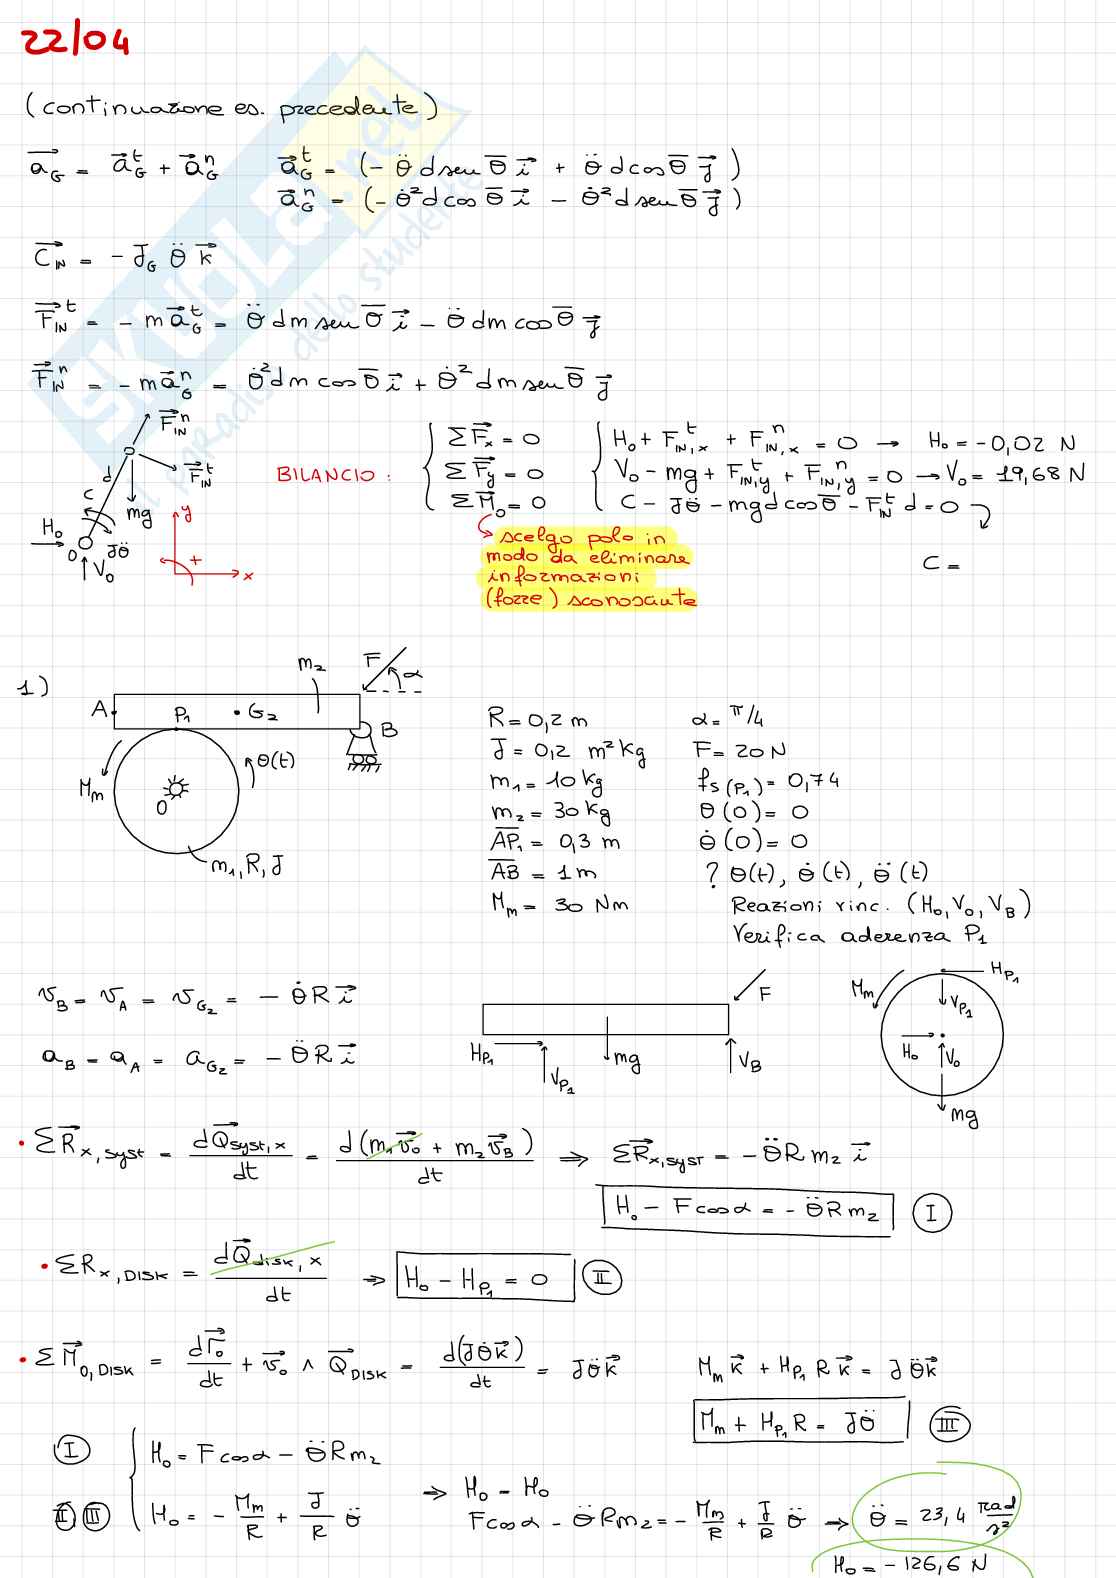 22/04
(continuazione es. precedente)
a⃗_G = a⃗_G^t + a⃗_G^n    a⃗_G^t = (- θ̈ d sen θ̄ i⃗ + θ̈ d cos θ̄ j⃗)
a⃗_G^n = (- θ̇² d cos θ̄ i⃗ - θ̇² d sen θ̄ j⃗)
C⃗_IN = - J_G θ̈ k⃗
F⃗_IN^t = - m a⃗_G^t = θ̈ d m sen θ̄ i⃗ - θ̈ d m cos θ̄ j⃗
F⃗_IN^n = - m a⃗_G^n = θ̇² d m cos θ̄ i⃗ + θ̇² d m sen θ̄ j⃗
F⃗_IN^n
F⃗_IN^t
d
C
mg
H₀
O
Jθ̈
V₀
y
+
x
BILANCIO :
ΣF⃗_x = 0    H₀ + F_IN,x^t + F_IN,x^n = 0 → H₀ = -0,02 N
ΣF⃗_y = 0    V₀ - mg + F_IN,y^t + F_IN,y^n = 0 → V₀ = 19,68 N
ΣM⃗₀ = 0    C - Jθ̈ - mgd cos θ̄ - F_IN^t d = 0
C =
scelgo polo in
modo da eliminare
informazioni
(forze) sconosciute
1)
m₂
F
α
A
P₁
G₂
B
M_m
θ(t)
O
m₁, R, J
R = 0,2 m    α = π/4
J = 0,2 m² Kg    F = 20 N
m₁ = 10 kg    f_s (P₁) = 0,74
m₂ = 30 kg    θ(0) = 0
AP₁ = 0,3 m    θ̇(0) = 0
AB = 1 m    ? θ(t), θ̇(t), θ̈(t)
M_m = 30 Nm    Reazioni vinc. (H₀, V₀, V_B)
Verifica aderenza P₁
v_B = v_A = v_G₂ = - θ̇ R i⃗
a_B = a_A = a_G₂ = - θ̈ R i⃗
F
H_P₁
V_P₁
mg
V_B
M_m
H_P₁
V_P₁
H₀
V₀
mg
• ΣR⃗_x,syst = dQ⃗_syst,x / dt = d(m₁v⃗₀ + m₂v⃗_B) / dt ⇒ ΣR⃗_x,SYST = - θ̈ R m₂ i⃗
H₀ - F cos α = - θ̈ R m₂    I
• ΣR_x,DISK = dQ⃗_disk,x / dt ⇒ H₀ - H_P₁ = 0    II
• ΣM⃗_0,DISK = dΓ⃗₀ / dt + v⃗₀ ∧ Q⃗_DISK = d(Jθ̇k⃗) / dt = Jθ̈k⃗    M_m k⃗ + H_P₁ R k⃗ = Jθ̈k⃗
M_m + H_P₁ R = Jθ̈    III
I    H₀ = F cos α - θ̈ R m₂
II III    H₀ = - M_m / R + J / R θ̈
⇒ H₀ = H₀
F cos α - θ̈ R m₂ = - M_m / R + J / R θ̈ → θ̈ = 23,4 rad / s²
H₀ = - 126,6 N
SKUOLA.net
il paradiso dello studente